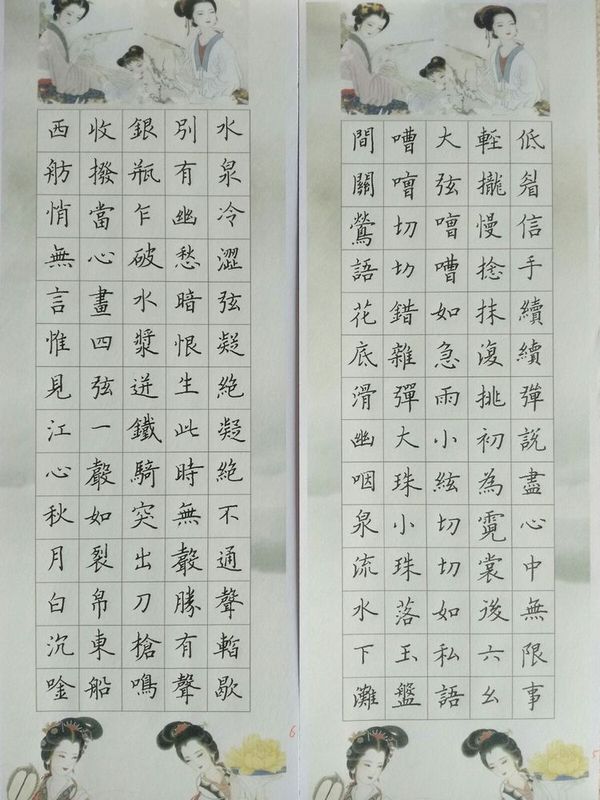 低眉信手續續彈說盡心中無限事
輕攏慢捻抹復挑初為霓裳後六幺
大弦嘈嘈如急雨小絃切切如私語
嘈嘈切切錯雜彈大珠小珠落玉盤
間關鶯語花底滑幽咽泉流水下灘
5
水泉冷澀弦凝絕凝絕不通聲暫歇
別有幽愁暗恨生此時無聲勝有聲
銀瓶乍破水漿迸鐵騎突出刀槍鳴
收撥當心畫四弦一聲如裂帛東船
西舫悄無言惟見江心秋月白沉唫
6